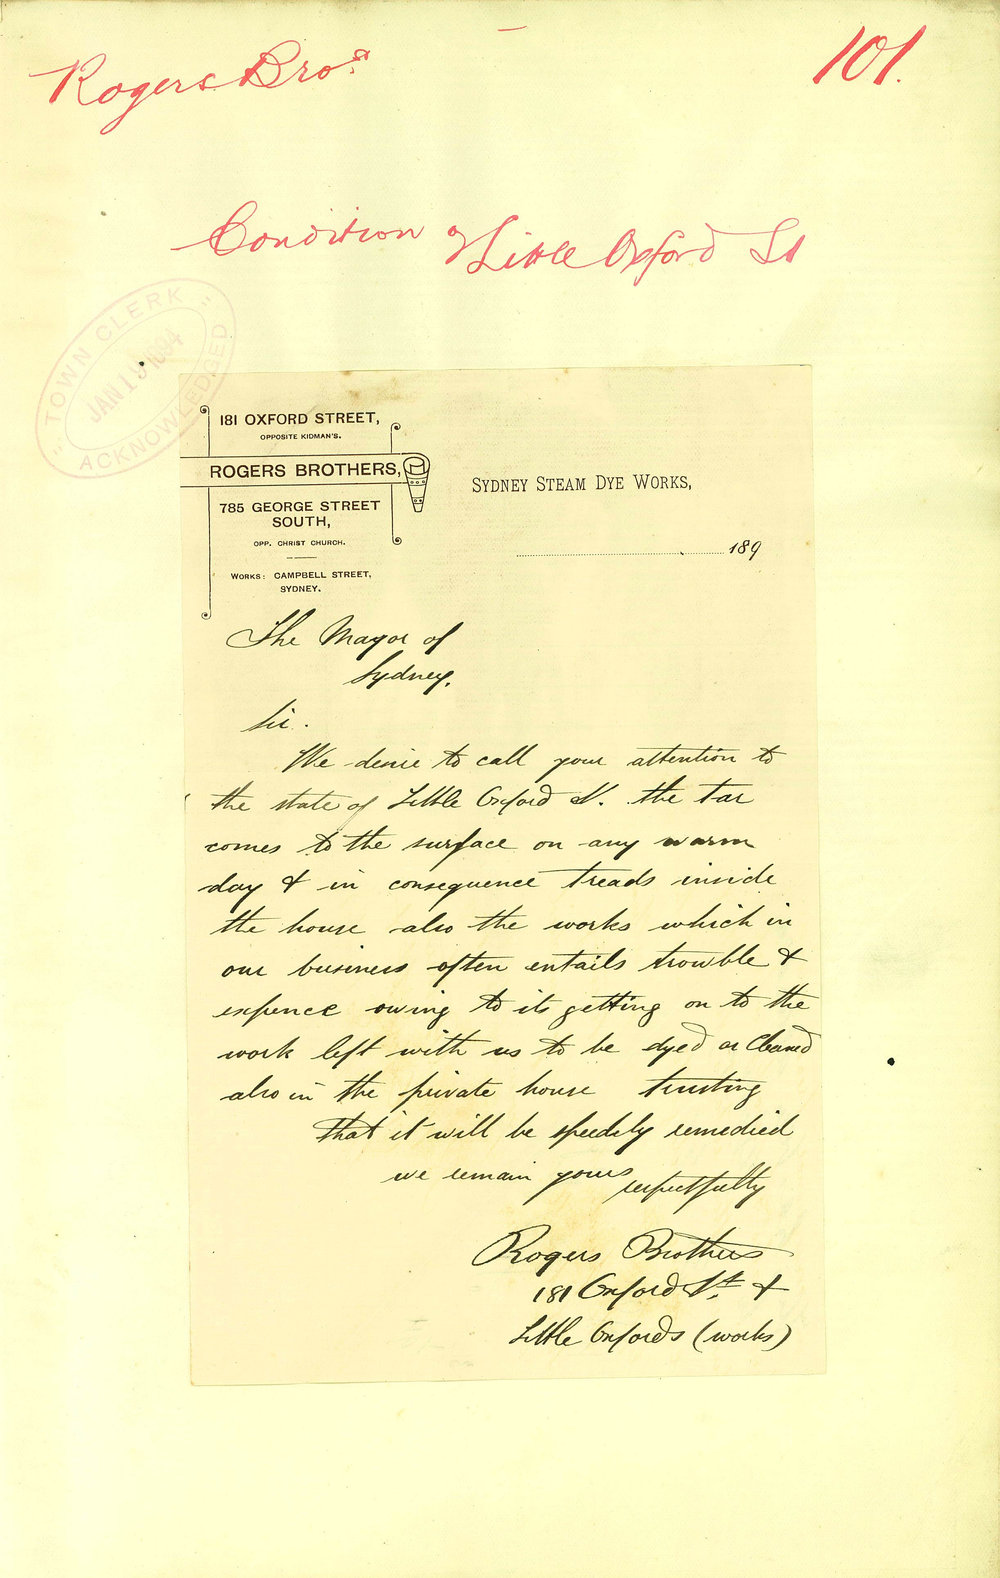 Rogers Bros
101.
Condition of Little Oxford St
TOWN CLERK
JAN 19 1894
ACKNOWLEDGED
181 OXFORD STREET,
OPPOSITE KIDMAN'S.
ROGERS BROTHERS,
785 GEORGE STREET
SOUTH,
OPP. CHRIST CHURCH.
WORKS: CAMPBELL STREET,
SYDNEY.
SYDNEY STEAM DYE WORKS,
189
The Mayor of
Sydney.
Sir.
We desire to call your attention to
the state of Little Oxford St. the tar
comes to the surface on any warm
day & in consequence treads inside
the house also the works which in
our business often entails trouble &
expence owing to its getting on to the
work left with us to be dyed or Cleaned
also in the private house trusting
that it will be speedily remedied
we remain yours respectfully
Rogers Brothers
181 Oxford St. &
Little Oxfords (works)